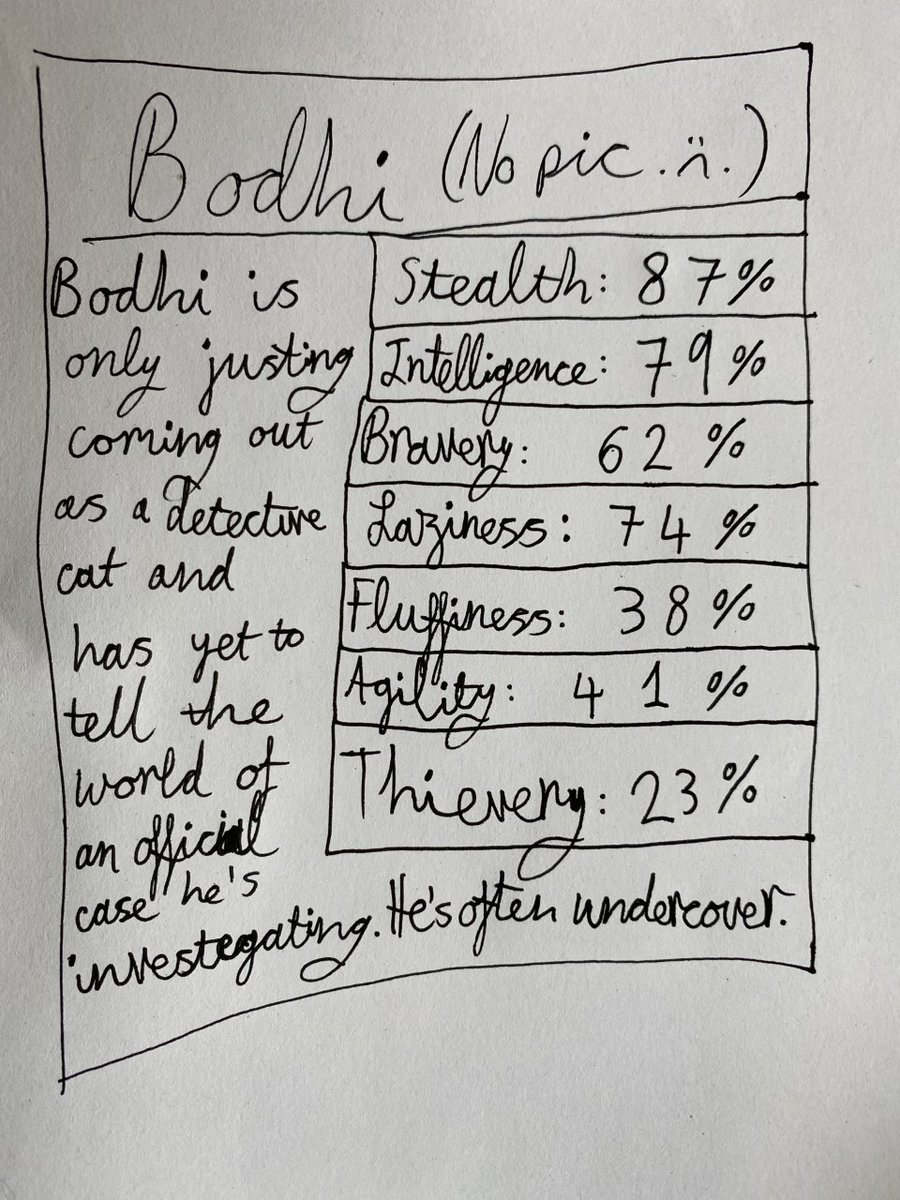 Bodhi (No pic. ¨n.)
Bodhi is
only justing
coming out
as a detective
cat and
has yet to
tell the
world of
an official
case he's
investegating. He's often undercover.
Stealth: 87%
Intelligence: 79%
Bravery: 62%
Laziness: 74%
Fluffiness: 38%
Agility: 41%
Thievery: 23%